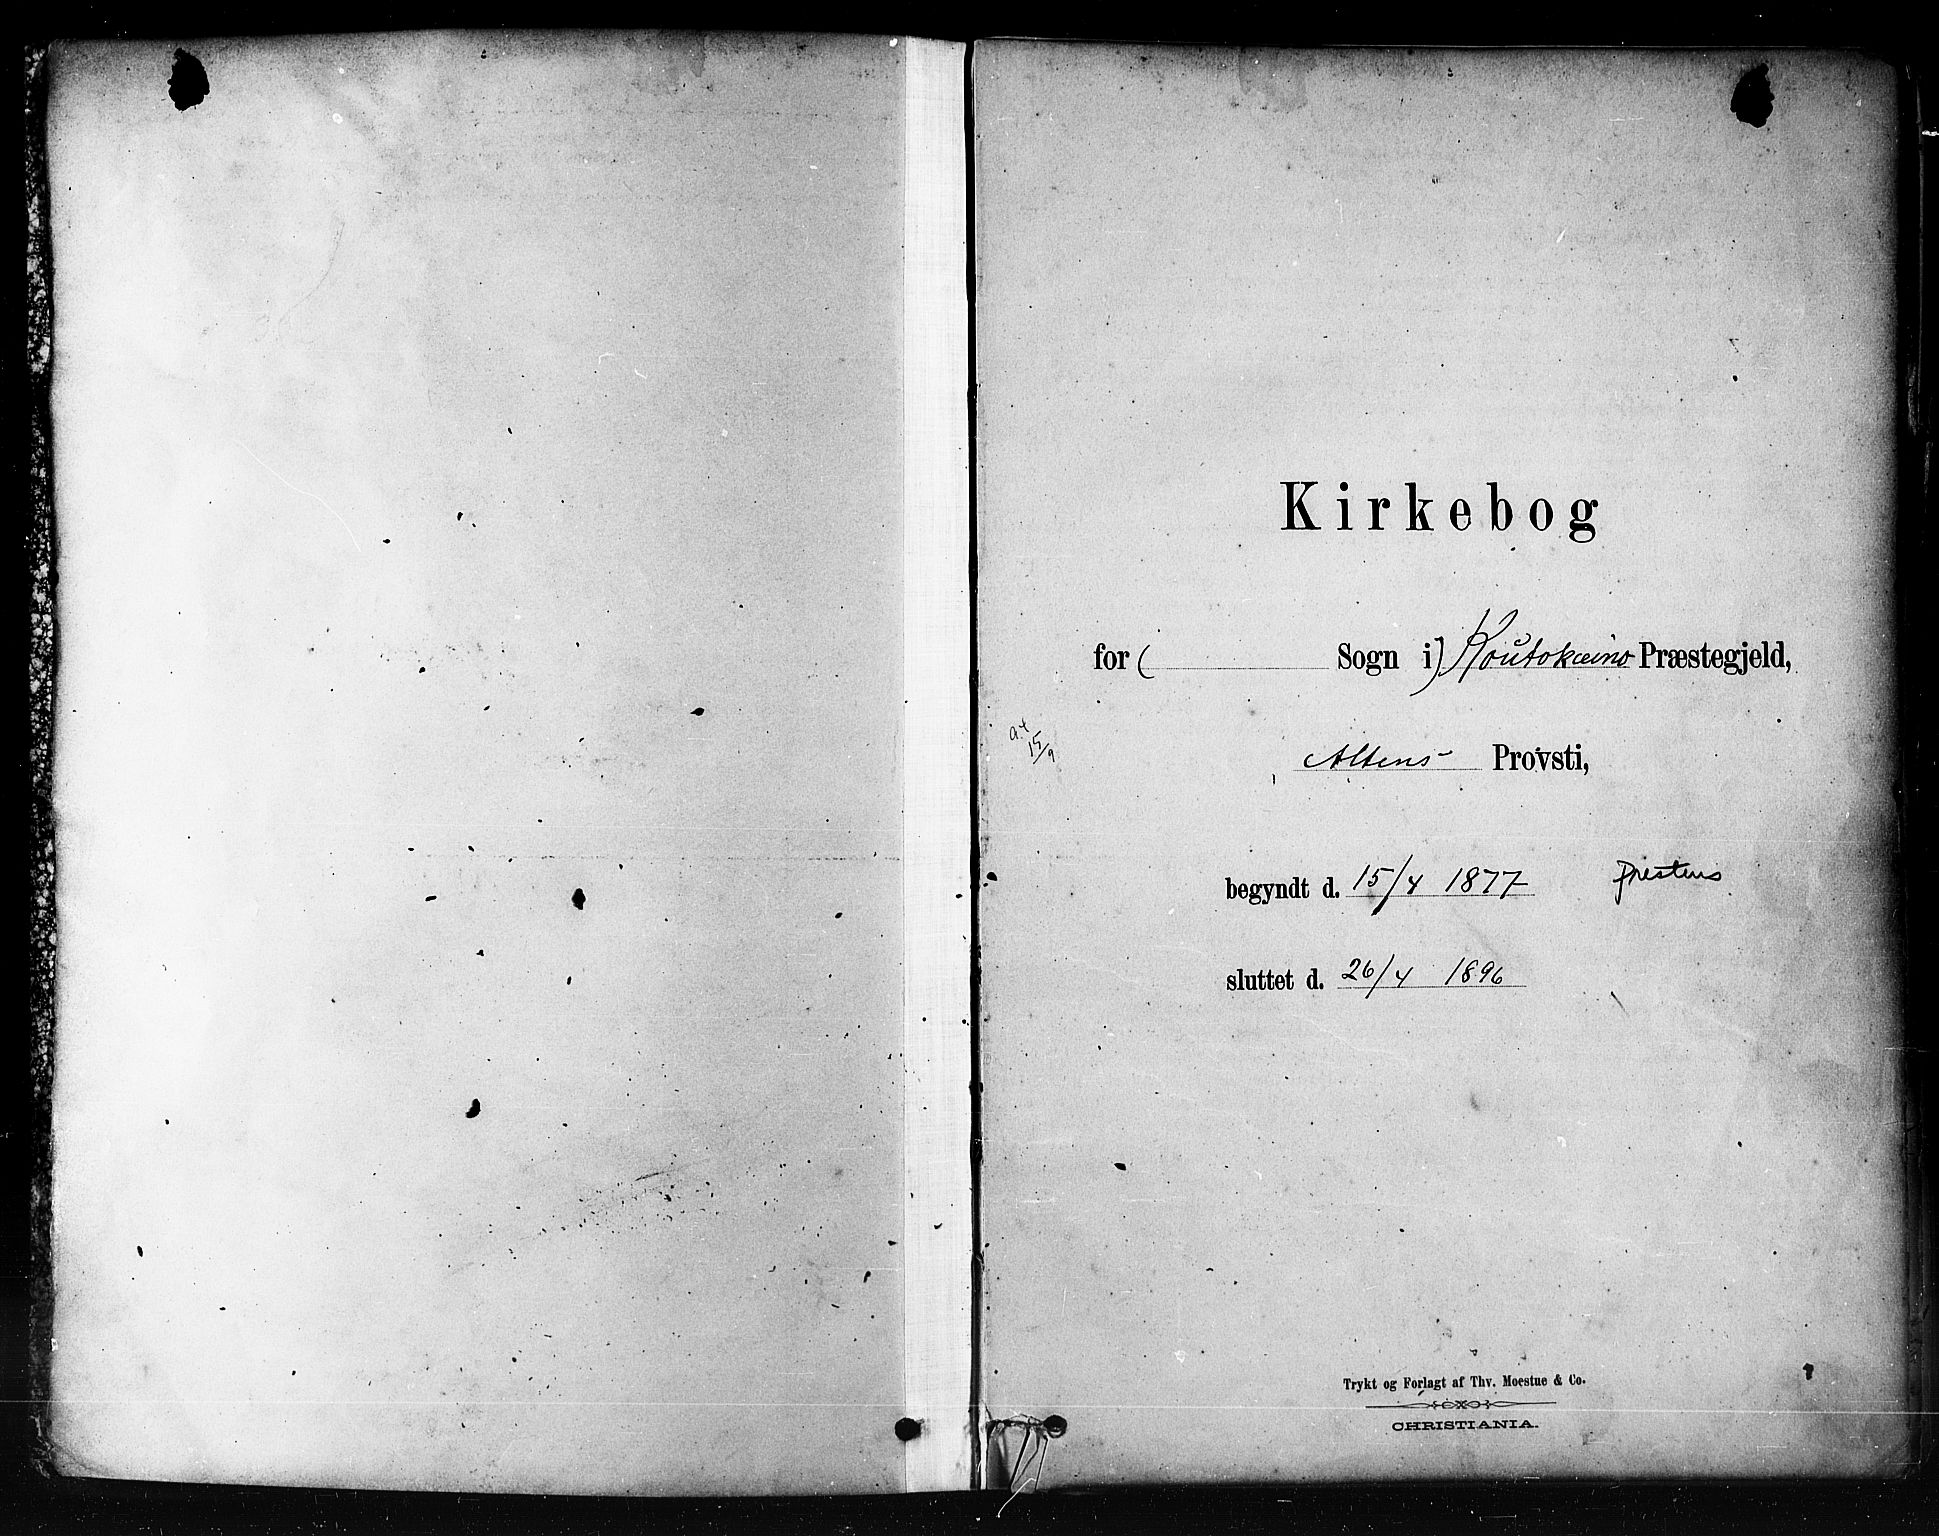 Kirkebog
for ( Sogn i) Koutokæino Præstegjeld,
15/9
Altens Provsti,
begyndt d. 15/4 1877 prestens
sluttet d. 26/4 1896
Trykt og Forlagt af Thv. Moestue & Co.
CHRISTIANIA.